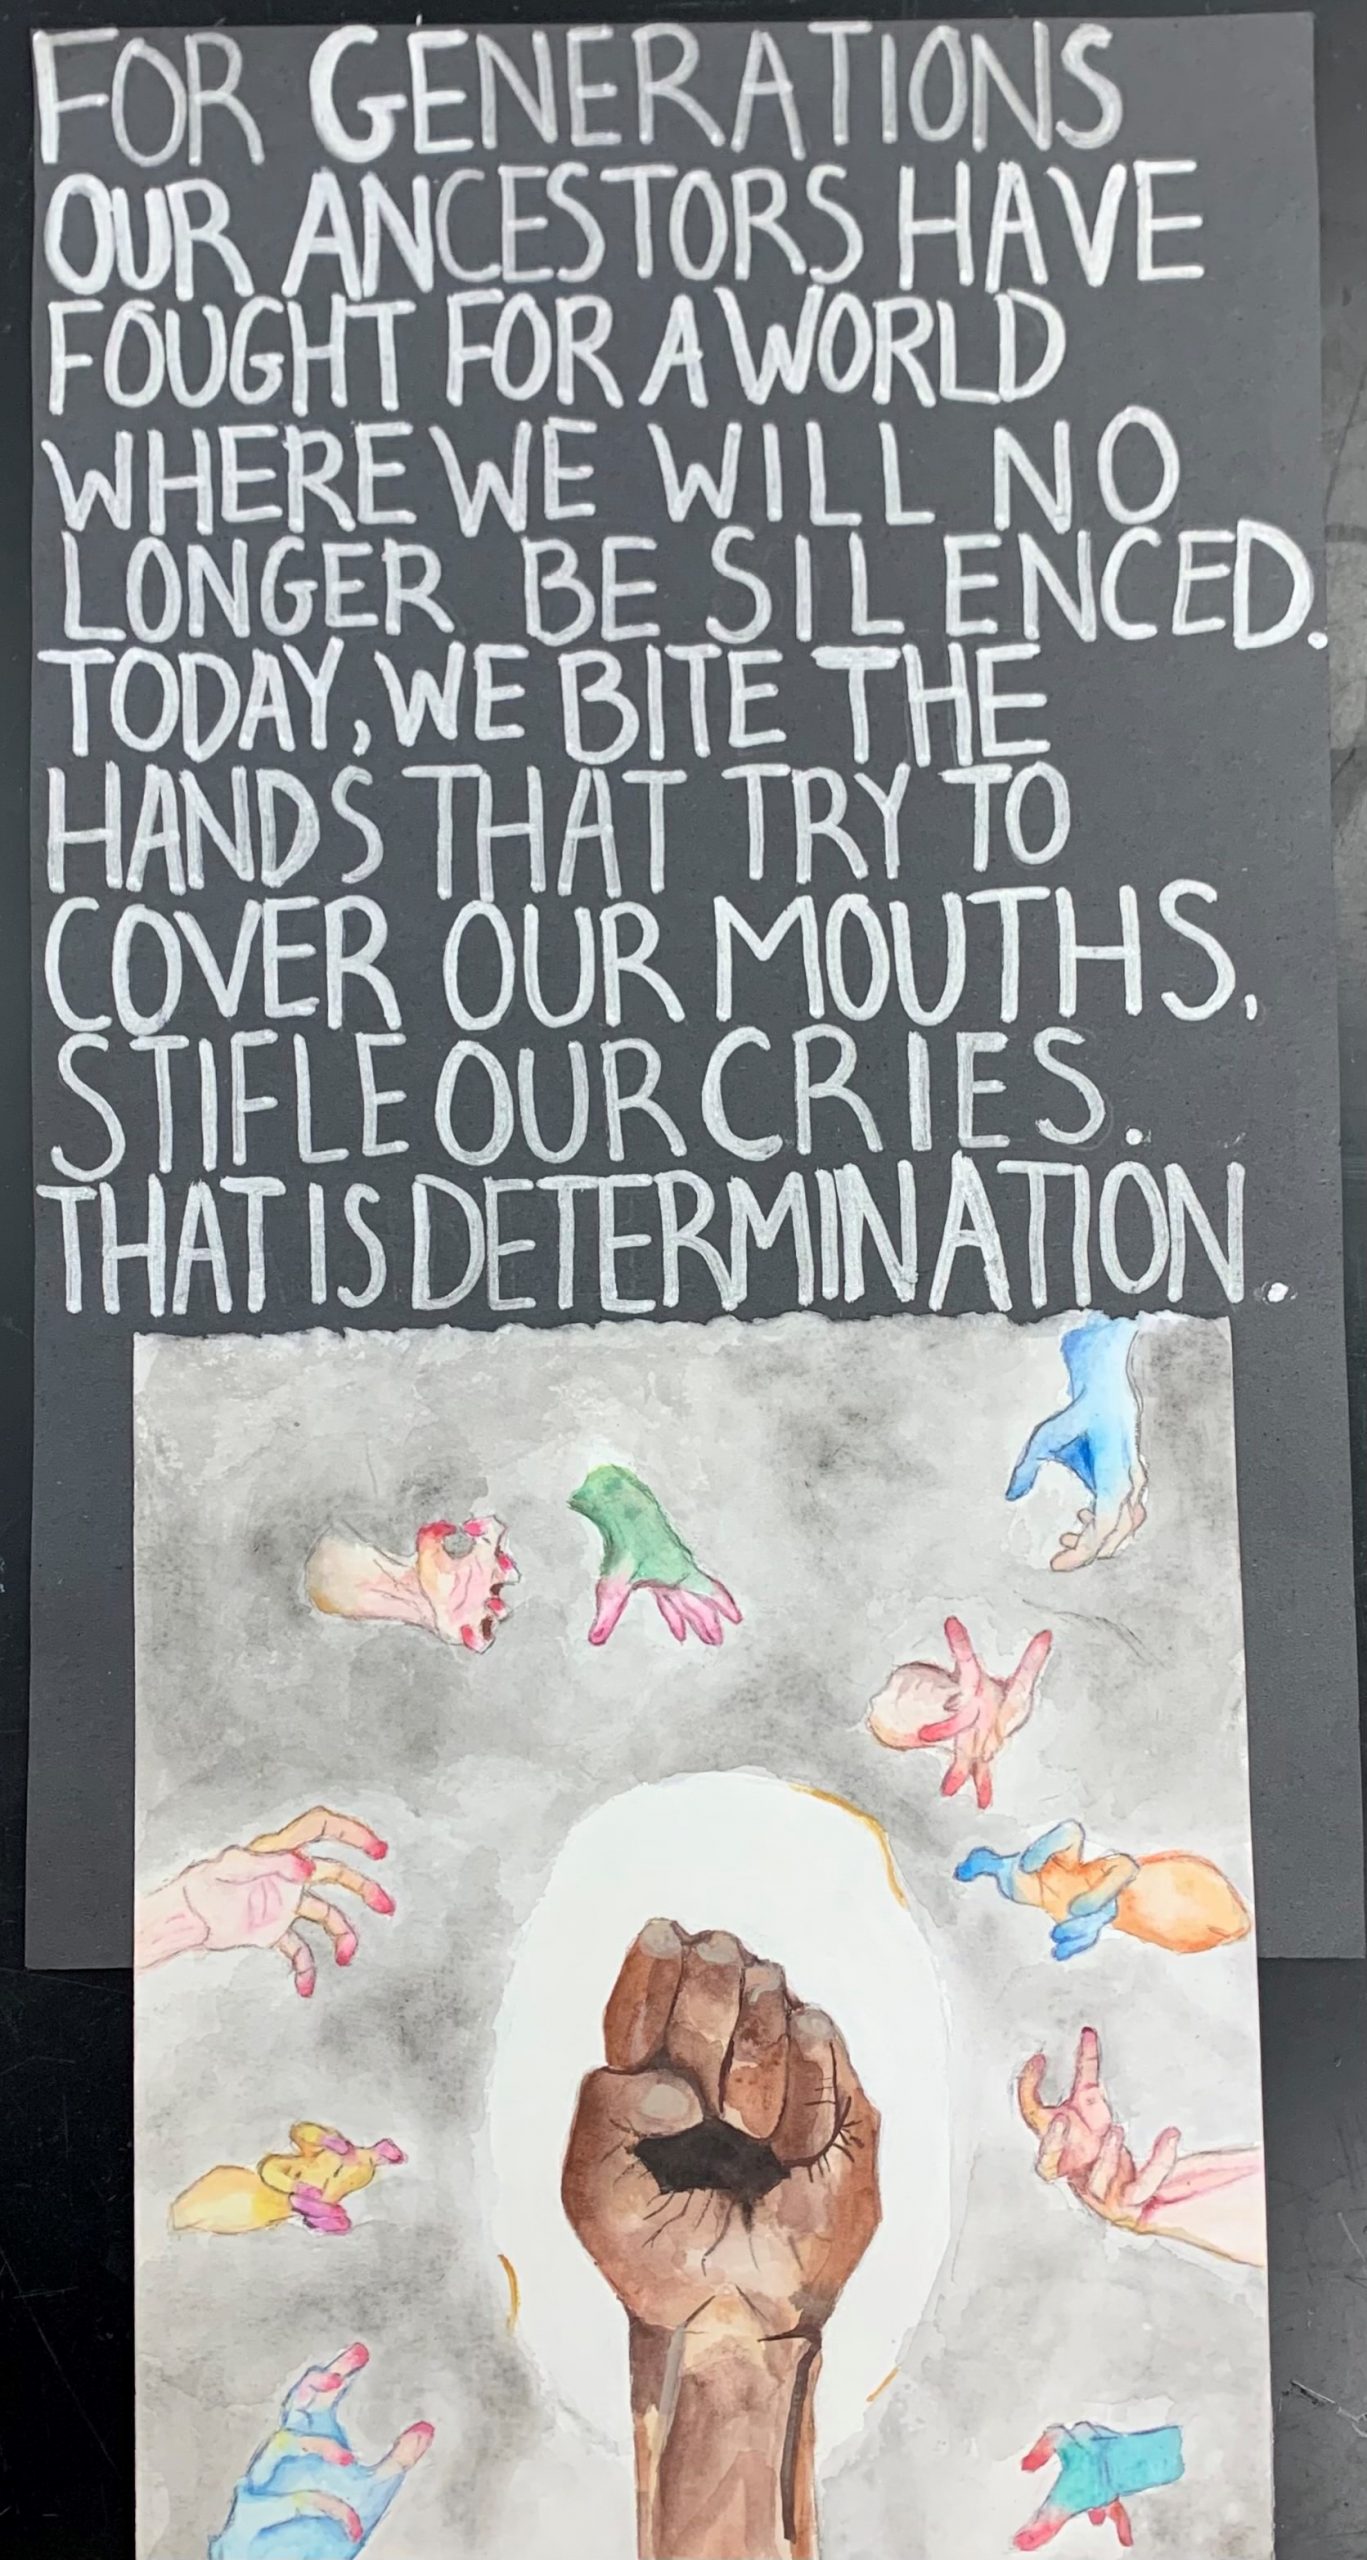 FOR GENERATIONS
OUR ANCESTORS HAVE
FOUGHT FOR A WORLD
WHERE WE WILL NO
LONGER BE SILENCED.
TODAY, WE BITE THE
HANDS THAT TRY TO
COVER OUR MOUTHS,
STIFLE OUR CRIES.
THAT IS DETERMINATION.